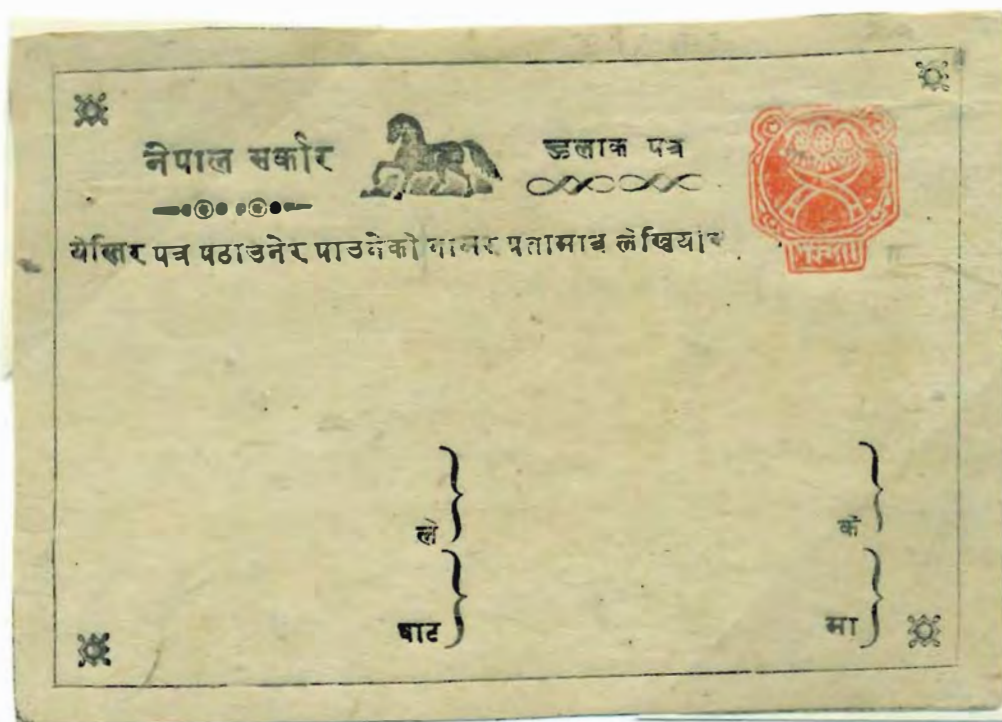 नेपाल सर्कार
हुलाक पत्र
येस्तिर पत्र पठाउनेर पाउनेको नामर पतामात्र लेखिया
ले
कं
बाट
मा